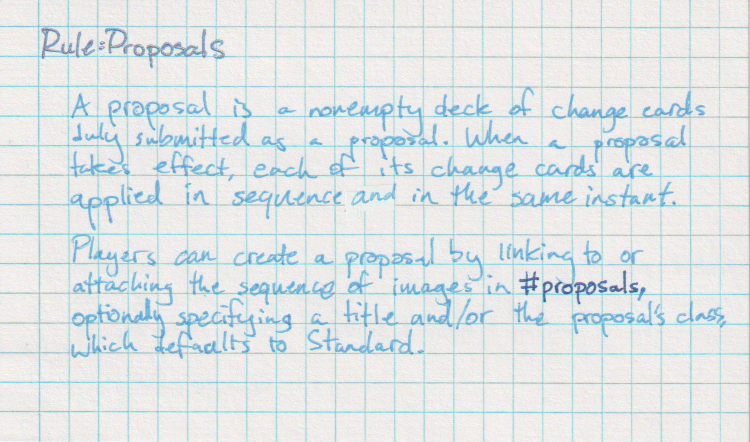 Rule: Proposals
A proposal is a nonempty deck of change cards
duly submitted as a proposal. When a proposal
takes effect, each of its change cards are
applied in sequence and in the same instant.
Players can create a proposal by linking to or
attaching the sequence of images in #proposals,
optionally specifying a title and/or the proposal's class,
which defaults to Standard.